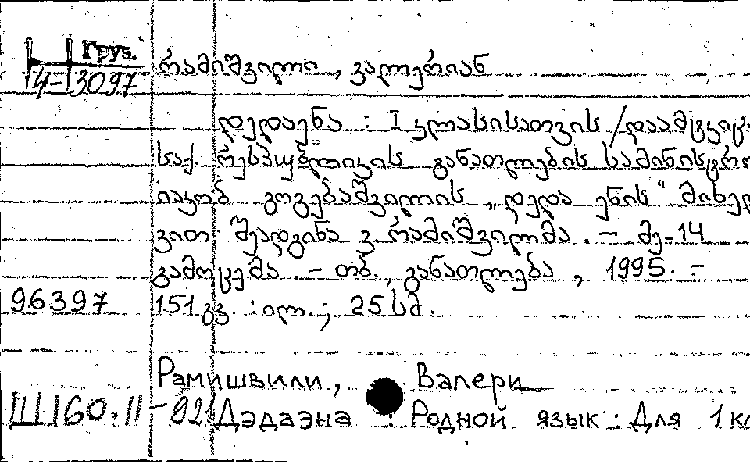 Груз.
4-3097
რამიშვილი, ვალერიან
დედაენა : I კლასისათვის /დაამტკიც
საქ. რესპუბლიკის განათლების სამინისტრო
იაკობ გოგებაშვილის „დედა ენის“ მიხედ
ვით შეადგინა ვ. რამიშვილმა. – მე-14
გამოცემა. – თბ., განათლება, 1995. –
96397 151 გვ. : ილ. ; 25 სმ.
Рамишвили, Валери
Ш160.11-921 Дэдаэна : Родной язык : Для 1 кл